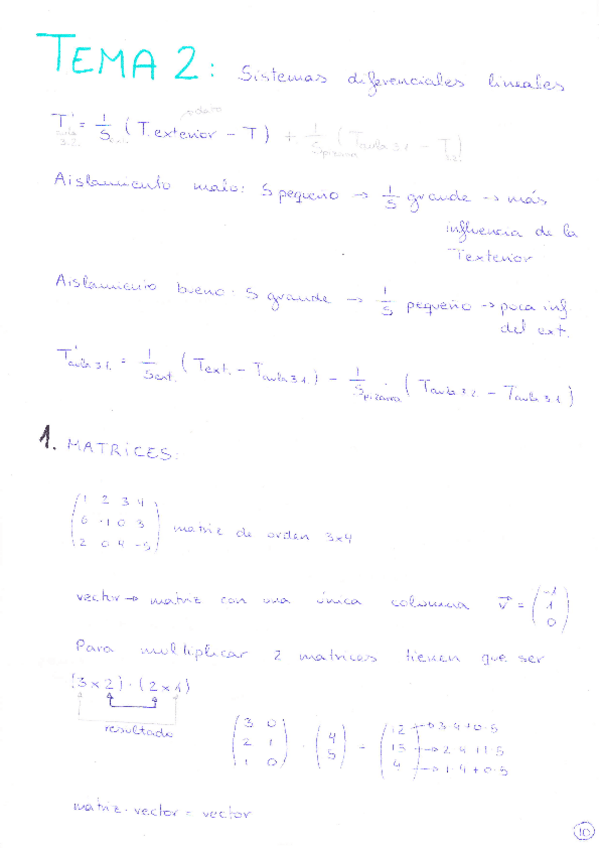 TEMA 2: Sistemas diferenciales lineales
dato
T' = 1/S (T. exterior - T) + 1/S pizarra (T aula 3.1 - T)
aula 3.2.
Aislamiento malo: S pequeño → 1/S grande → más
influencia de la
T exterior
Aislamiento bueno: S grande → 1/S pequeño → poca inf.
del ext.
T' aula 3.1. = 1/S ext. (T ext. - T aula 3.1.) - 1/S pizarra (T aula 3.2 - T aula 3.1)
1. MATRICES:
1 2 3 4
0 -1 0 3 matriz de orden 3x4
2 0 4 -5
vector → matriz con una única columna v = (-1 1 0)
Para multiplicar 2 matrices tienen que ser
(3 x 2) · (2 x 1)
resultado
3 0 12 → 3·4+0·5
2 1 · 4 = 13 → 2·4+1·5
1 0 5 4 → 1·4+0·5
matriz · vector = vector
10